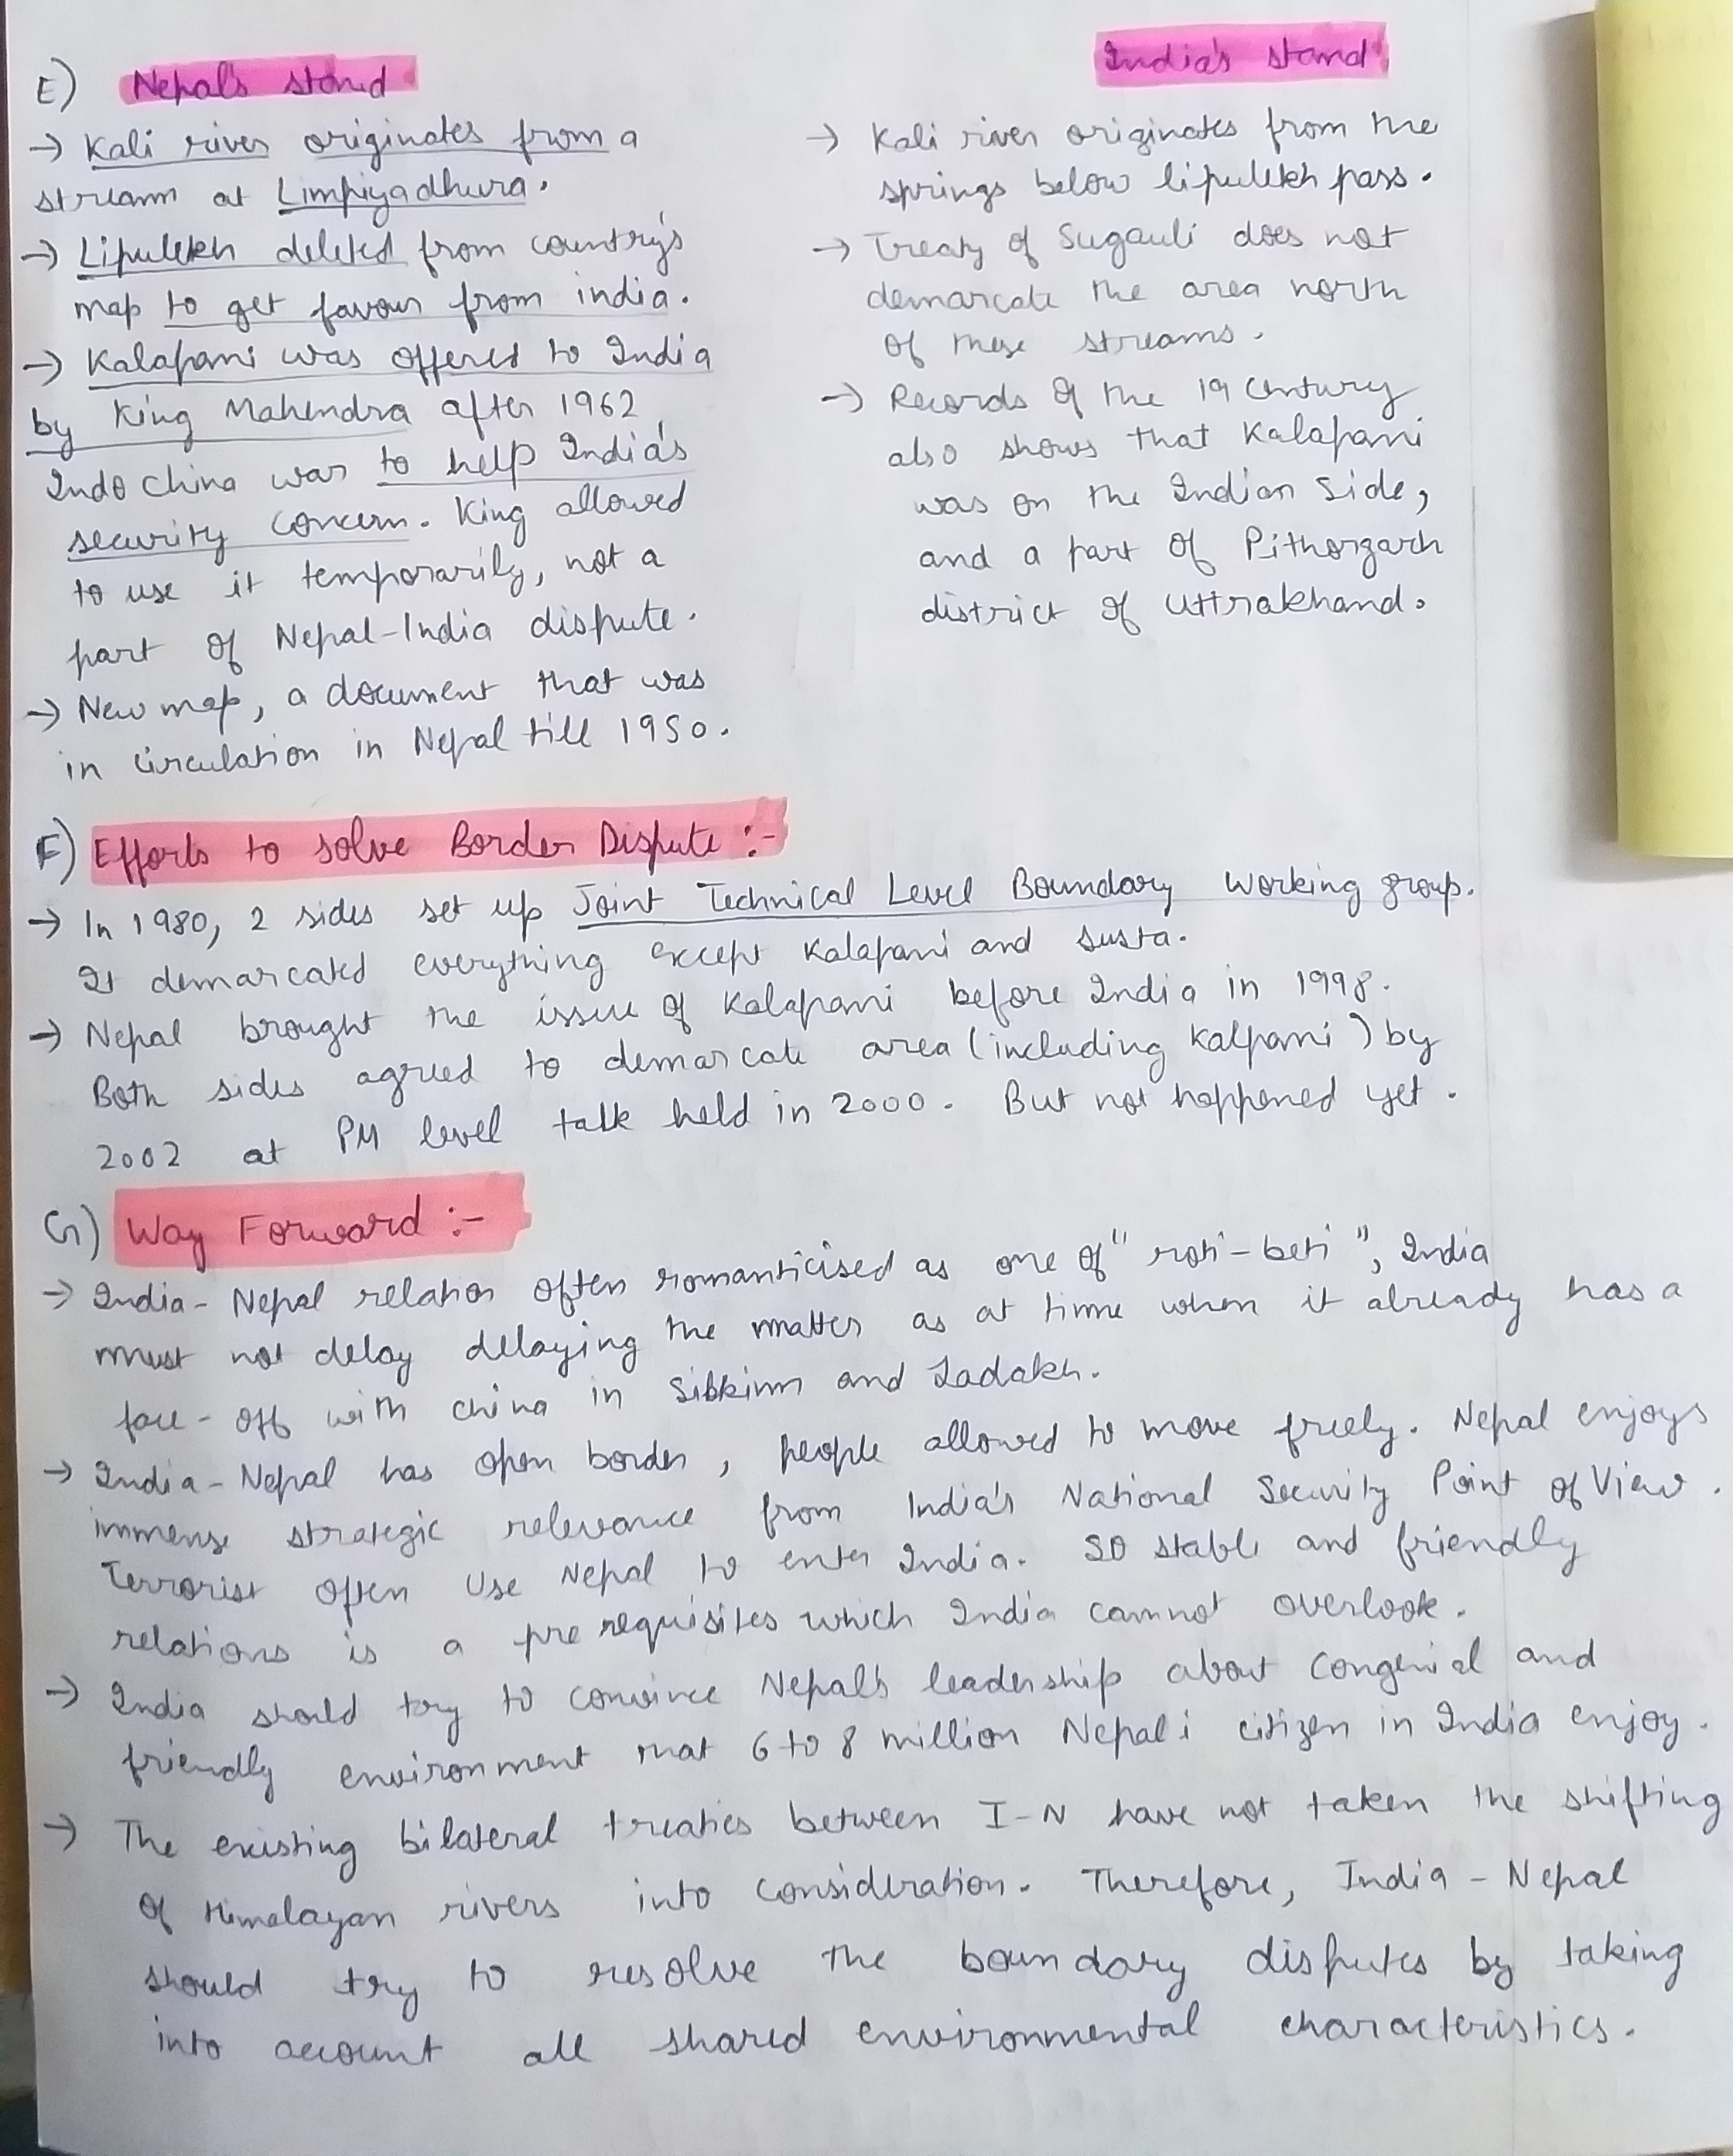 E) Nepal's stand
→ Kali river originates from a
stream at Limpiyadhura.
→ Lipulekh deleted from country's
map to get favour from india.
→ Kalapani was offered to India
by King Mahendra after 1962
Indo China war to help India's
security concern. King allowed
to use it temporarily, not a
part of Nepal-India dispute.
→ New map, a document that was
in circulation in Nepal till 1950.
India's stand
→ Kali river originates from the
springs below lipulekh pass.
→ Treaty of Sugauli does not
demarcate the area north
of these streams.
→ Records of the 19 century
also shows that Kalapani
was on the Indian side,
and a part of Pithorgarh
district of Uttrakhand.
F) Efforts to solve Border Dispute :-
→ In 1980, 2 sides set up Joint Technical Level Boundary Working group.
It demarcated everything except Kalapani and Susta.
→ Nepal brought the issue of Kalapani before India in 1998.
Both sides agreed to demarcate area (including Kalpani) by
2002 at PM level talk held in 2000. But not happened yet.
G) Way Forward :-
→ India-Nepal relation often romanticised as one of "roti-beti", India
must not delay delaying the matter as at time when it already has a
face-off with china in Sikkim and Ladakh.
→ India-Nepal has open border, people allowed to move freely. Nepal enjoys
immense strategic relevance from India's National Security Point of View.
Terrorist often use Nepal to enter India. So stable and friendly
relations is a pre requisites which India cannot overlook.
→ India should try to convince Nepal's leadership about congenial and
friendly environment that 6 to 8 million Nepali citizen in India enjoy.
→ The existing bilateral treaties between I-N have not taken the shifting
of Himalayan rivers into consideration. Therefore, India-Nepal
should try to resolve the boundary disputes by taking
into account all shared environmental characteristics.